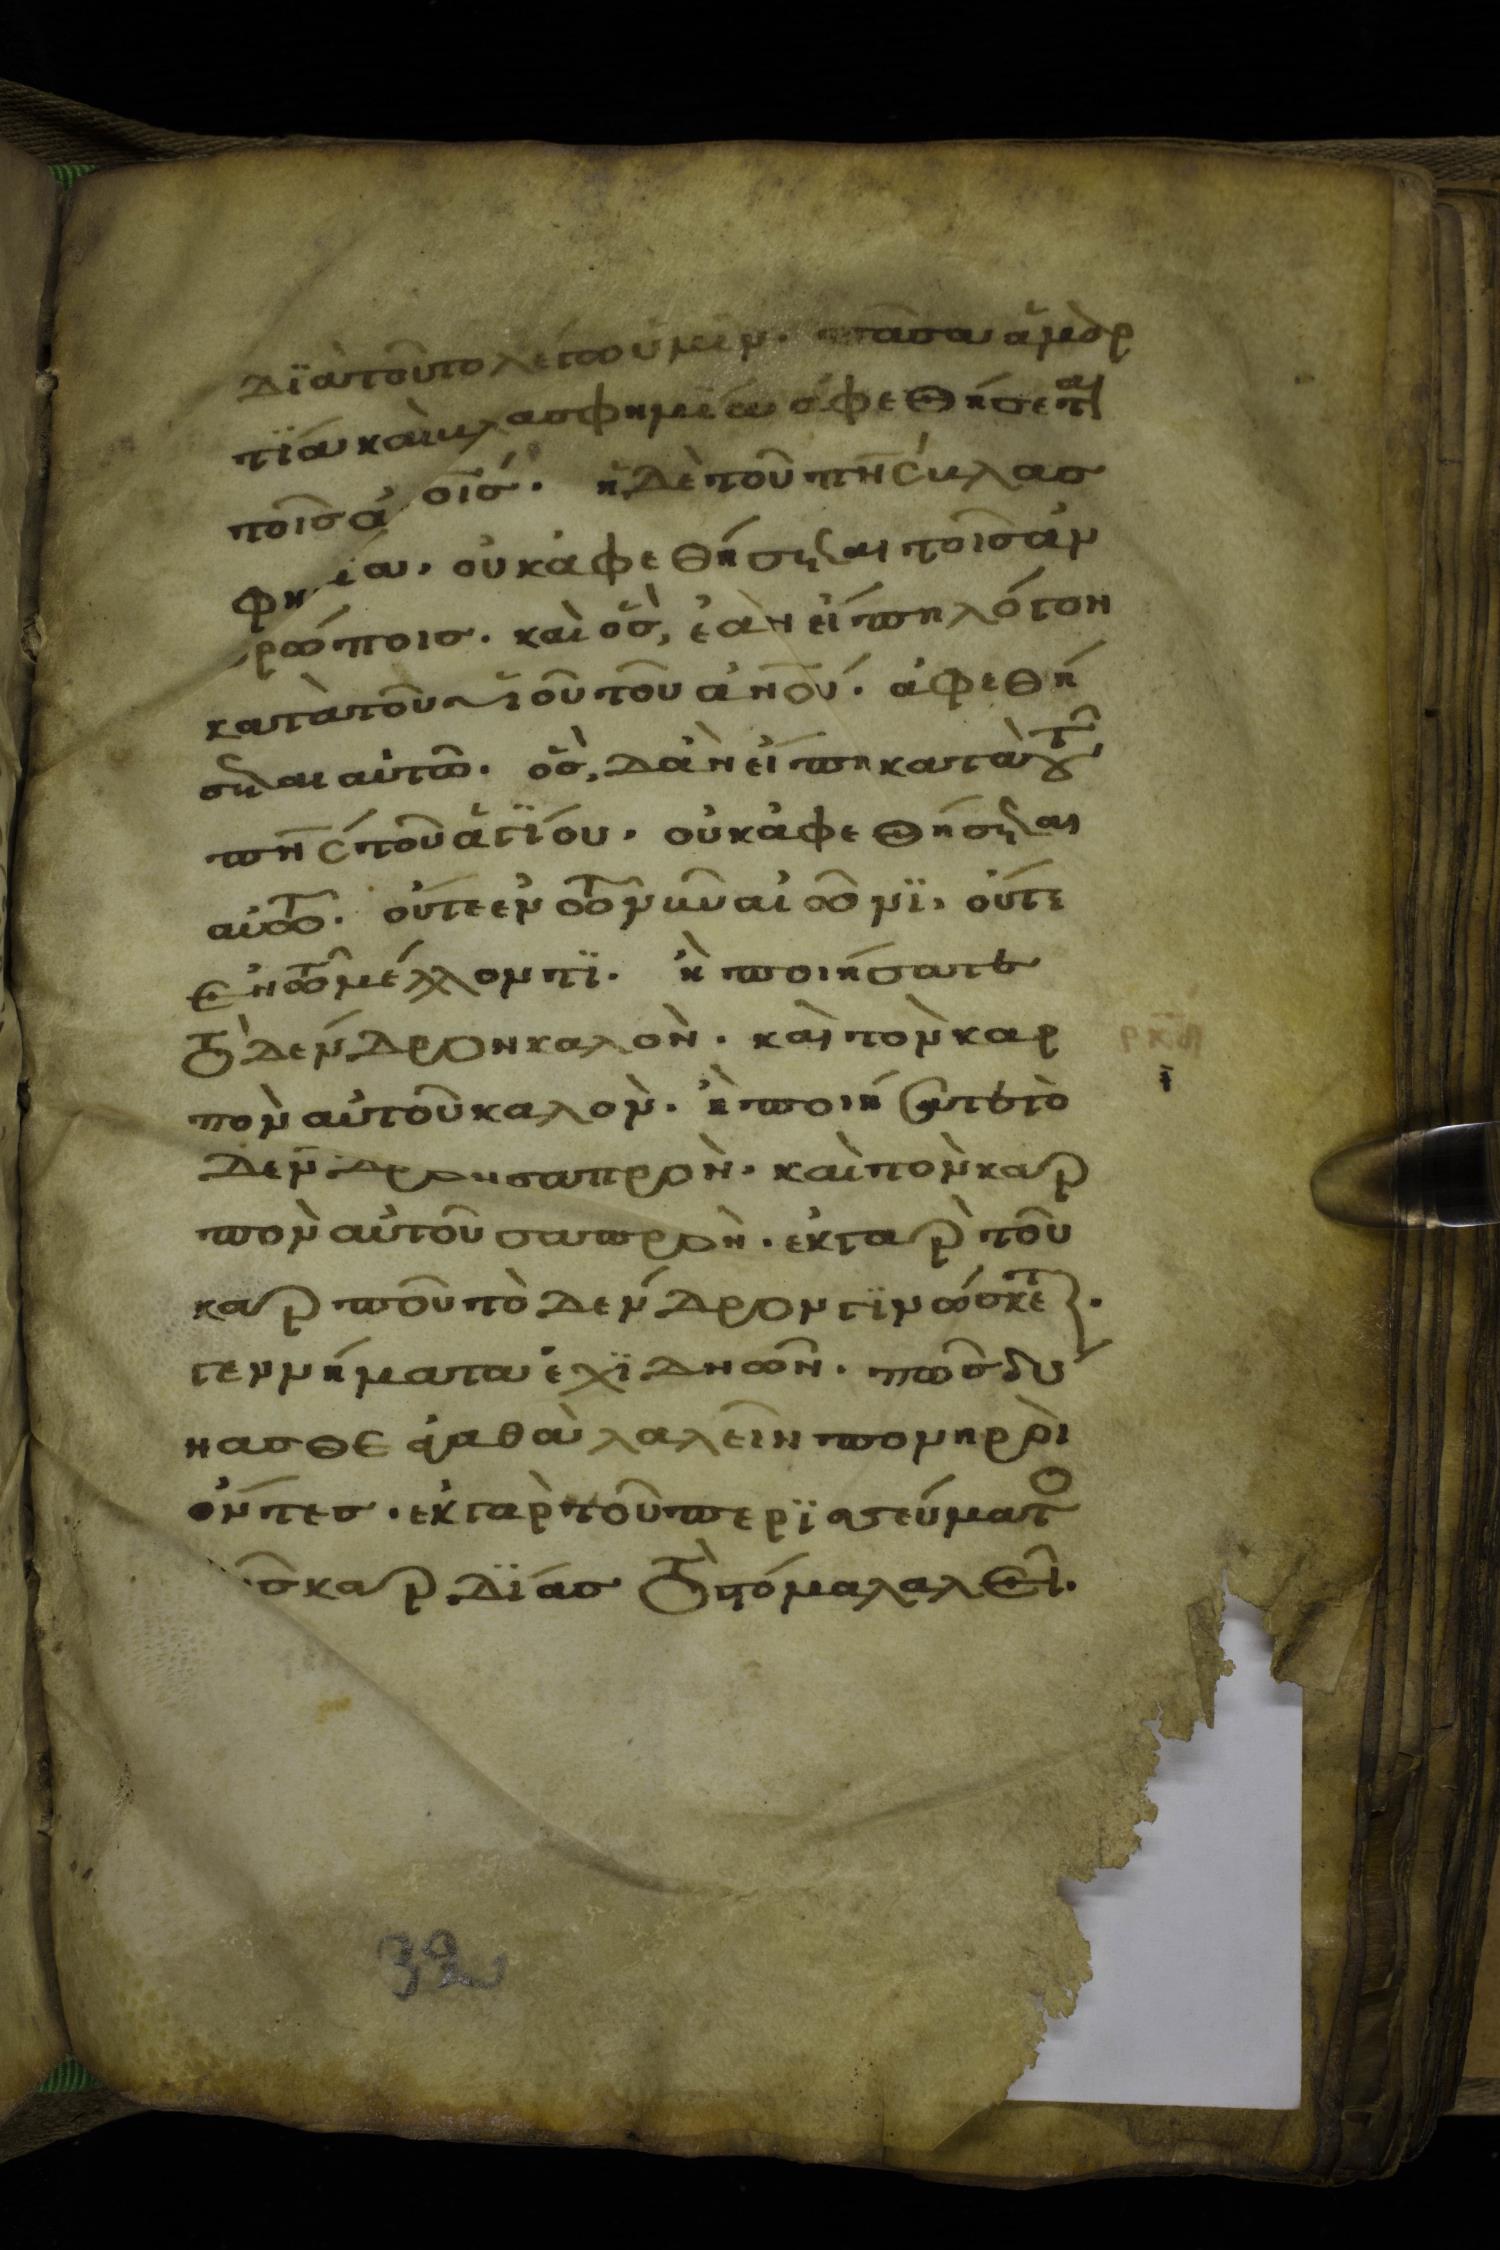 διατοῦτο λέγω ὑμῖν. πᾶσα ἁμαρ
τία καὶ βλασφημία ἀφεθήσεται
τοῖς ἀ οις. ἡ δὲ τοῦ πνς βλασ
φη ια. οὐκ ἀφεθήσεται τοῖς ἀν
θρώποις. καὶ ὃς ἐὰν εἴπη λόγον
κατὰ τοῦ υἱοῦ τοῦ ανου. ἀφεθή
σεται αὐτῶ. ὃς δ' ἂν εἴπη κατὰ τοῦ
πνς τοῦ ἁγίου. οὐκ ἀφεθήσεται
αὐτῶ. οὔτε ἐν τῶ νῦν αἰῶνι, οὔτε
ἐν τῶ μέλλοντι. ἢ ποιήσατε
τὸ δένδρον καλὸν. καὶ τὸν καρ
ρκβ
πὸν αὐτοῦ καλὸν. ἢ ποιήσατε τὸ
δένδρον σαπρὸν. καὶ τὸν καρ
πὸν αὐτοῦ σαπρὸν. ἐκ γὰρ τοῦ
καρποῦ τὸ δένδρον γινώσκεται.
γεννήματα ἐχιδνῶν. πῶς δύ
νασθε ἀγαθὰ λαλεῖν πονηροὶ
ὄντες. ἐκ γὰρ τοῦ περισσεύματος
ῆς καρδίας τὸ στόμα λαλεῖ.
32